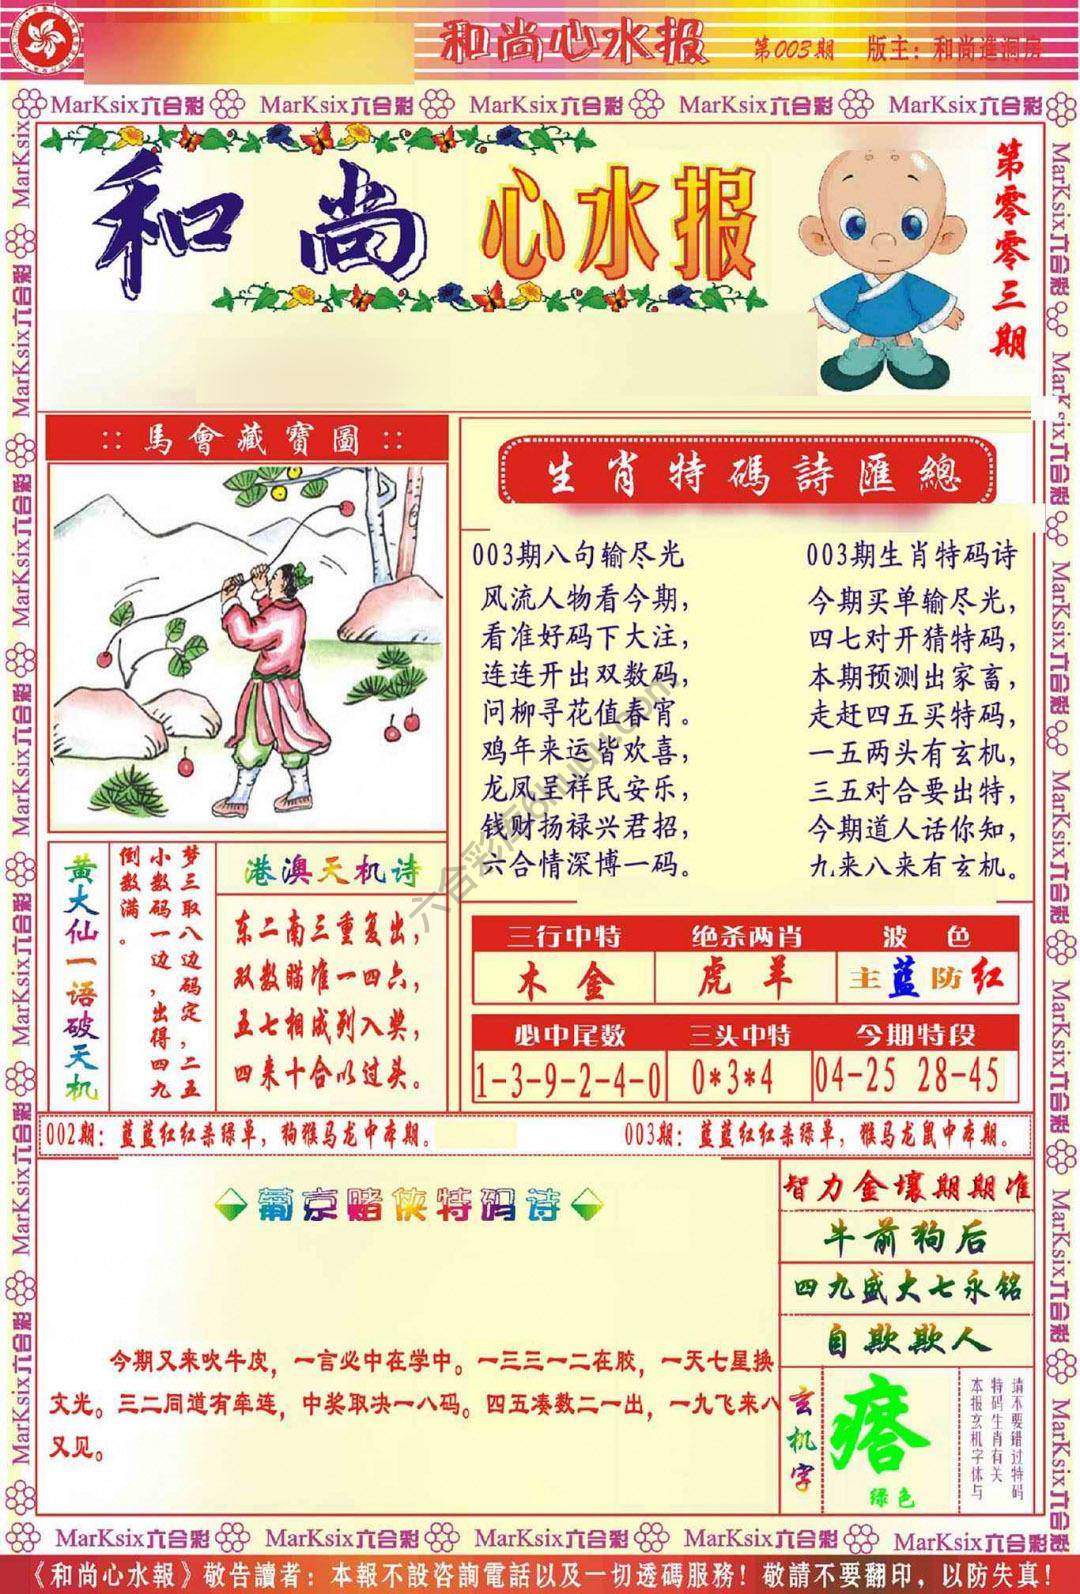 和尚心水报 第003期 版主：和尚進洞房
MarKsix六合彩 MarKsix六合彩 MarKsix六合彩 MarKsix六合彩 MarKsix六合彩
和尚心水报
第零零三期
::馬會藏寶圖::
生肖特碼詩匯總
003期八句输尽光
风流人物看今期，
看准好码下大注，
连连开出双数码，
问柳寻花值春宵。
鸡年来运皆欢喜，
龙凤呈祥民安乐，
钱财扬禄兴君招，
六合情深博一码。
003期生肖特码诗
今期买单输尽光，
四七对开猜特码，
本期预测出家畜，
走赶四五买特码，
一五两头有玄机，
三五对合要出特，
今期道人话你知，
九来八来有玄机。
黄大仙一语破天机
梦三取八边码定，二五
小数码一边，出得四九
倒数满。
港澳天机诗
东二南三重复出，
双数瞄准一四六，
五七相成列入奖，
四来十合以过头。
三行中特 绝杀两肖 波色
木金 虎羊 主蓝防红
必中尾数 三头中特 今期特段
1-3-9-2-4-0 0*3*4 04-25 28-45
002期：蓝蓝红红杀绿单，狗猴马龙中本期。
003期：蓝蓝红红杀绿单，猴马龙鼠中本期。
葡京赌侠特码诗
今期又来吹牛皮，一言必中在学中。一三三一二在胶，一天七星换
文光。三二同道有牵连，中奖取决一八码。四五凑数二一出，一九飞来八
又见。
智力金壤期期准
牛前狗后
四九盛大七永铭
自欺欺人
玄机字
瘩
绿色
请不要错过特码
特码生肖有关
本报玄机字体与
六合彩库6huuu.com
MarKsix六合彩 MarKsix六合彩 MarKsix六合彩 MarKsix六合彩 MarKsix六合彩
《和尚心水報》敬告讀者：本報不設咨詢電話以及一切透碼服務！敬請不要翻印，以防失真！